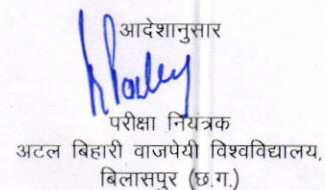 आदेशानुसार
परीक्षा नियंत्रक
अटल बिहारी वाजपेयी विश्वविद्यालय,
बिलासपुर (छ.ग.)